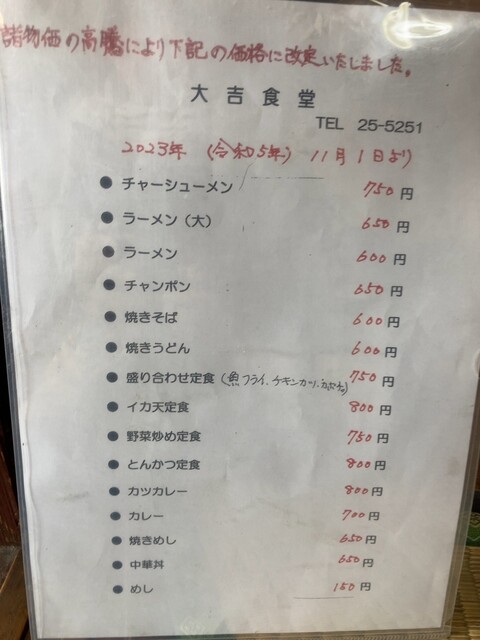 諸物価の高騰により下記の価格に改定いたしました。
大吉食堂
TEL 25-5251
2023年 (令和5年) 11月1日より
● チャーシューメン 750円
● ラーメン(大) 650円
● ラーメン 600円
● チャンポン 650円
● 焼きそば 600円
● 焼きうどん 600円
● 盛り合わせ定食 (魚フライ、チキンカツ、 750円
● イカ天定食 800円
● 野菜炒め定食 750円
● とんかつ定食 800円
● カツカレー 800円
● カレー 700円
● 焼きめし 650円
● 中華丼 650円
● めし 150円